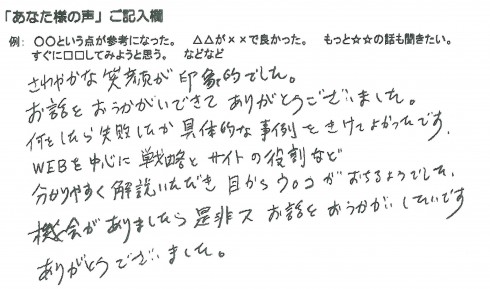 「あなた様の声」ご記入欄
例: 〇〇という点が参考になった。 △△が××で良かった。 もっと☆☆の話も聞きたい。
すぐに□□してみようと思う。 などなど
さわやかな笑顔が印象的でした。
お話をおうかがいできてありがとうございました。
何をしたら失敗したか具体的な事例をきけてよかったです.
WEBを中心に戦略とサイトの役割など
分かりやすく解説いただき目からウロコがおちるようでした.
機会がありましたら是非又お話をおうかがいしたいです
ありがとうございました。